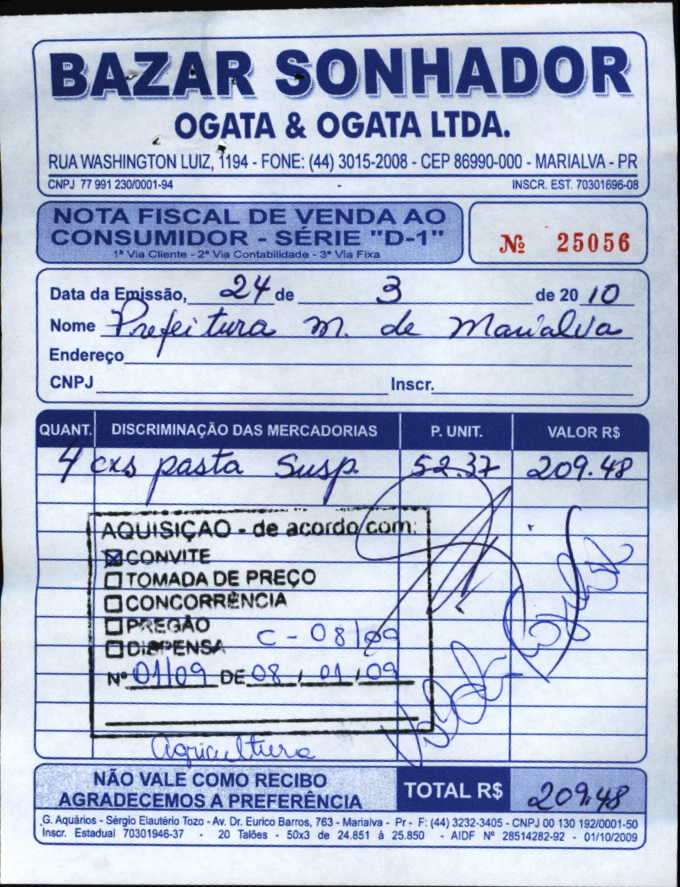 BAZAR SONHADOR
OGATA & OGATA LTDA.
RUA WASHINGTON LUIZ, 1194 - FONE: (44) 3015-2008 - CEP 86990-000 - MARIALVA - PR
CNPJ 77 991 230/0001-94 INSCR. EST. 70301696-08
NOTA FISCAL DE VENDA AO
CONSUMIDOR - SÉRIE "D-1"
1ª Via Cliente - 2ª Via Contabilidade - 3ª Via Fixa
Nº 25056
Data da Emissão, 24 de 3 de 20 10
Nome Prefeitura M. de Marialva
Endereço
CNPJ Inscr.
QUANT. DISCRIMINAÇÃO DAS MERCADORIAS P. UNIT. VALOR R$
4 cxs pasta Susp. 52.37 209.48
AQUISIÇAO - de acordo com:
CONVITE
TOMADA DE PREÇO
CONCORRÊNCIA
PREGÃO
DISPENSA C - 08/09
Nº 01/09 DE 08 / 01 / 09
Agricultura
NÃO VALE COMO RECIBO
AGRADECEMOS A PREFERÊNCIA
TOTAL R$ 209.48
G. Aquários - Sérgio Elautério Tozo - Av. Dr. Eurico Barros, 763 - Marialva - Pr - F: (44) 3232-3405 - CNPJ 00 130 192/0001-50
Inscr. Estadual 70301946-37 - 20 Talões - 50x3 de 24.851 á 25.850 - AIDF Nº 28514282-92 - 01/10/2009